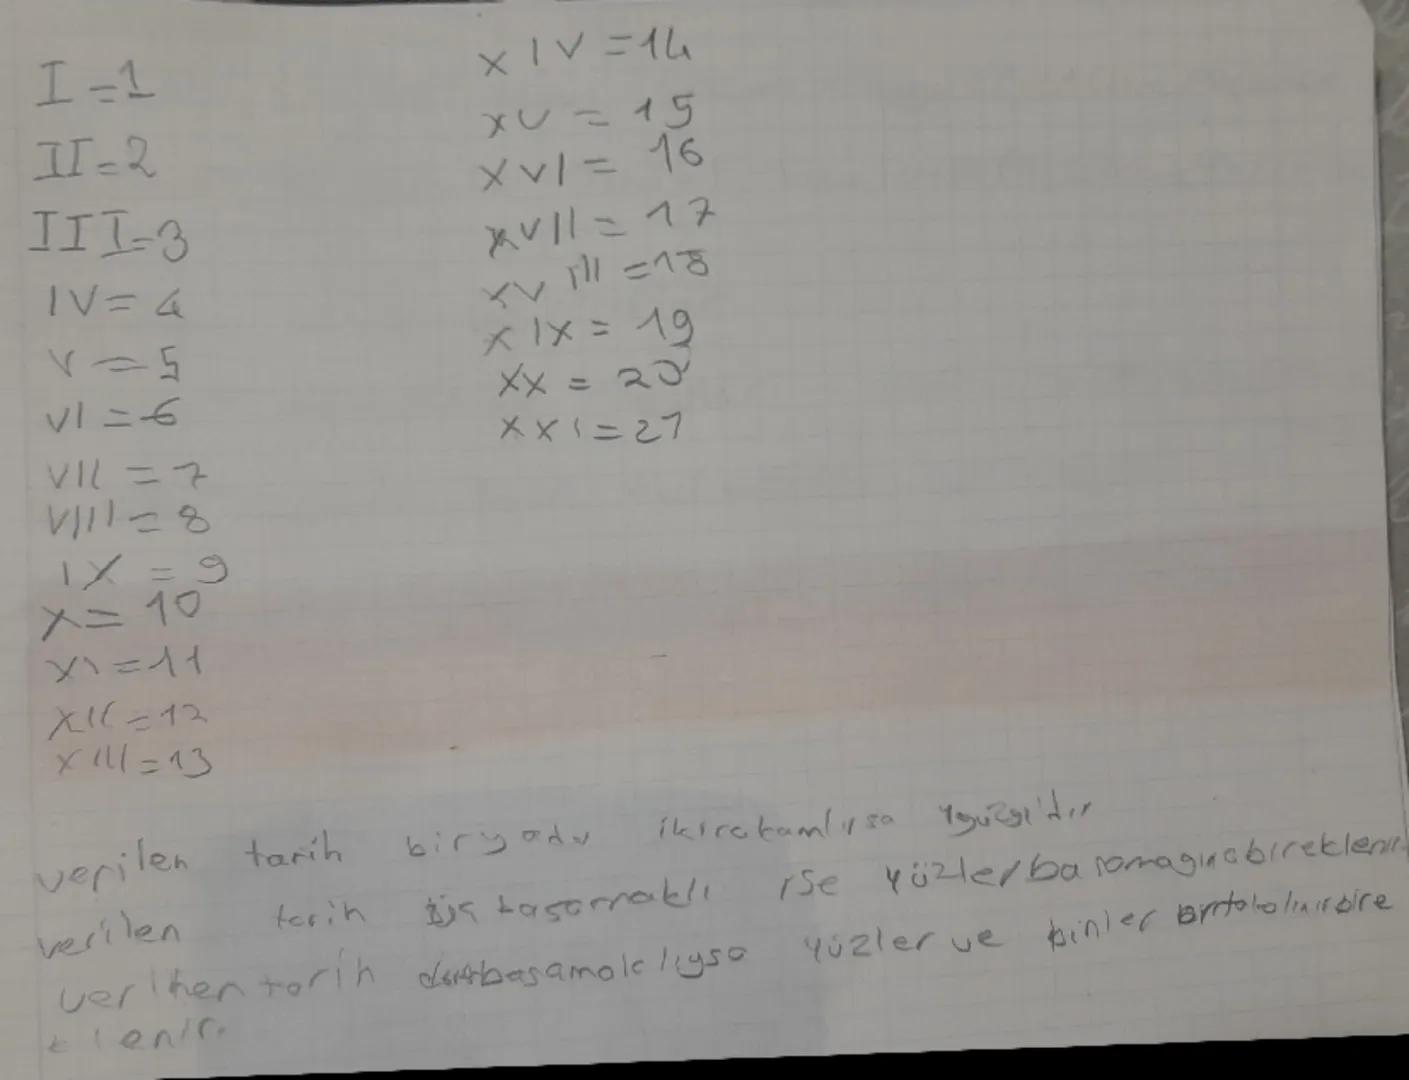 I=1
II=2
III=3
IV=4
V=5
VI=6
VII=7
VIII=8
IX=9
X=10
XI=11
XII=12
XIII=13
XIV=14
XV=15
XVI=16
XVII=17
XVIII=18
XIX=19
XX=20
XXI=21
verilen tarih biryadu ikirakamlısa 1yüzyıldır
verilen tarih üç basamaklı ise yüzlerbasamağınabireklenir
verilen tarih dörtbasamaklıysa yüzler ve binler bire
klenir.